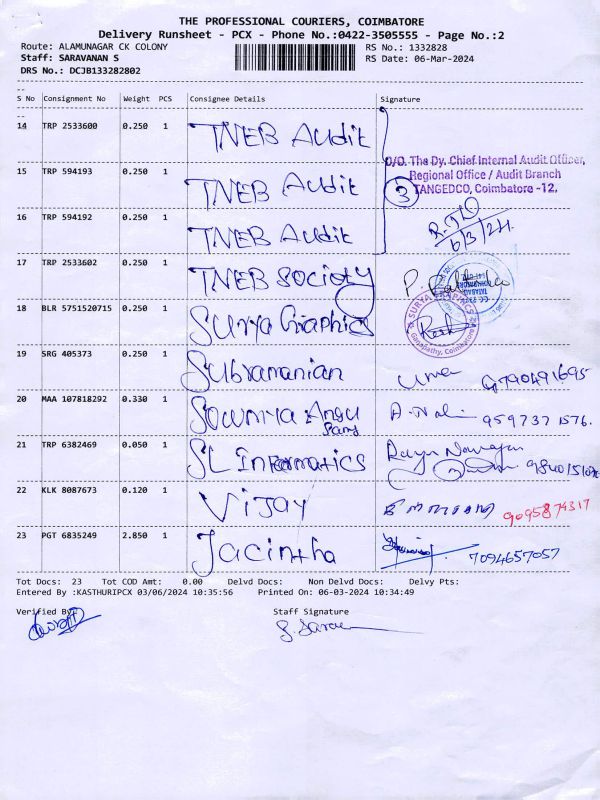 THE PROFESSIONAL COURIERS, COIMBATORE
Delivery Runsheet - PCX - Phone No.:0422-3505555 - Page No.:2
Route: ALAMUNAGAR CK COLONY
RS No.: 1332828
Staff: SARAVANAN S
RS Date: 06-Mar-2024
DRS No.: DCJB133282802
S No Consignment No Weight PCS Consignee Details Signature
14 TRP 2533600 0.250 1 TNEB Audit
O/O. The Dy. Chief Internal Audit Officer,
Regional Office / Audit Branch
TANGEDCO, Coimbatore -12.
15 TRP 594193 0.250 1 TNEB Audit 3
16 TRP 594192 0.250 1 TNEB Audit
6/3/24
17 TRP 2533602 0.250 1 TNEB Society
18 BLR 5751520715 0.250 1 Surya Graphics
SURYA GRAPHICS
Ganapathy, Coimbatore
19 SRG 405373 0.250 1 Subramanian Uma
20 MAA 107818292 0.330 1 Sowmiya 9597371576.
21 TRP 6382469 0.050 1 SL Informatics
22 KLK 8087673 0.120 1 Vijay
23 PGT 6835249 2.850 1 Jacintha 7094657057
Tot Docs: 23 Tot COD Amt: 0.00 Delvd Docs: Non Delvd Docs: Delvy Pts:
Entered By :KASTHURIPCX 03/06/2024 10:35:56 Printed On: 06-03-2024 10:34:49
Verified By
Staff Signature